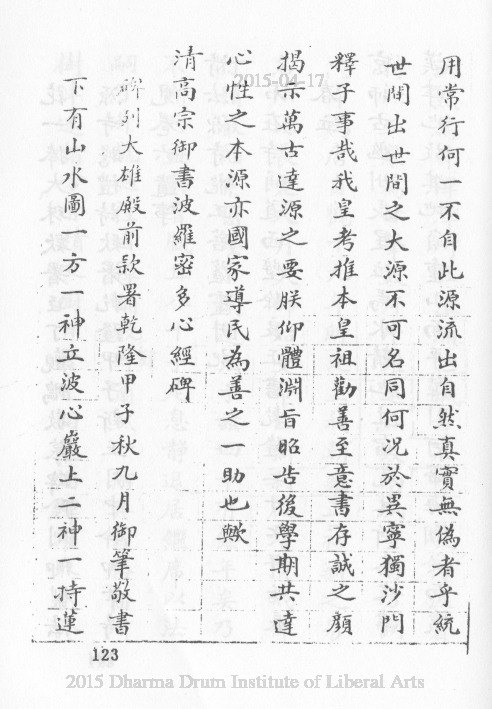 用常行何 不自此源流出自然真實無偽者乎統
世間出世間之大源不可名同何况於異寧獨沙門
釋子事哉我皇考推本皇祖勸善至意書存誠之額
揭示萬古達源之要朕仰體淵旨昭告後學期共達
心性之本源亦國家導民為善之一助也歟
清高宗御書波羅密多心經碑
碑列大雄殿前款署乾隆甲子秋九月御筆敬書
下有山水圖一方一神立波心巖上二神一持蓮
123
2015-04-17
2015 Dharma Drum Institute of Liberal Arts